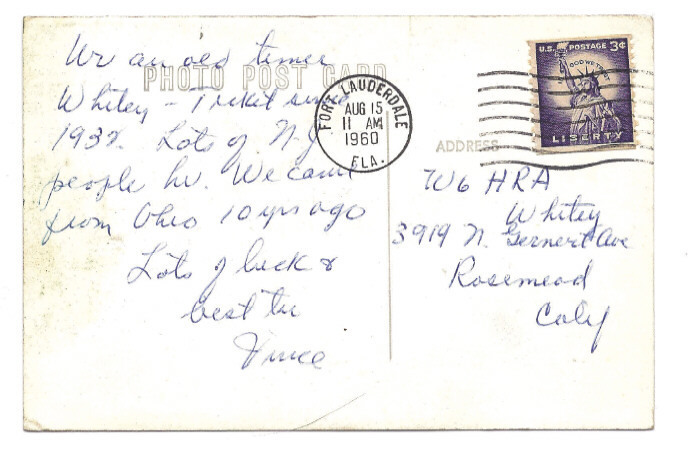 We an old timer
PHOTO POST CARD
Whitey - Ticket since
1932. Lots of N.Y.
people hr. We came
from Ohio 10 yrs ago
Lots of luck &
best to u
Vince
FORT LAUDERDALE
AUG 15
11 AM
1960
FLA.
U.S. POSTAGE 3¢
IN GOD WE TRUST
LIBERTY
ADDRESS
W6 HRA
Whitey
3919 N. Gernert Ave
Rosemead
Calif